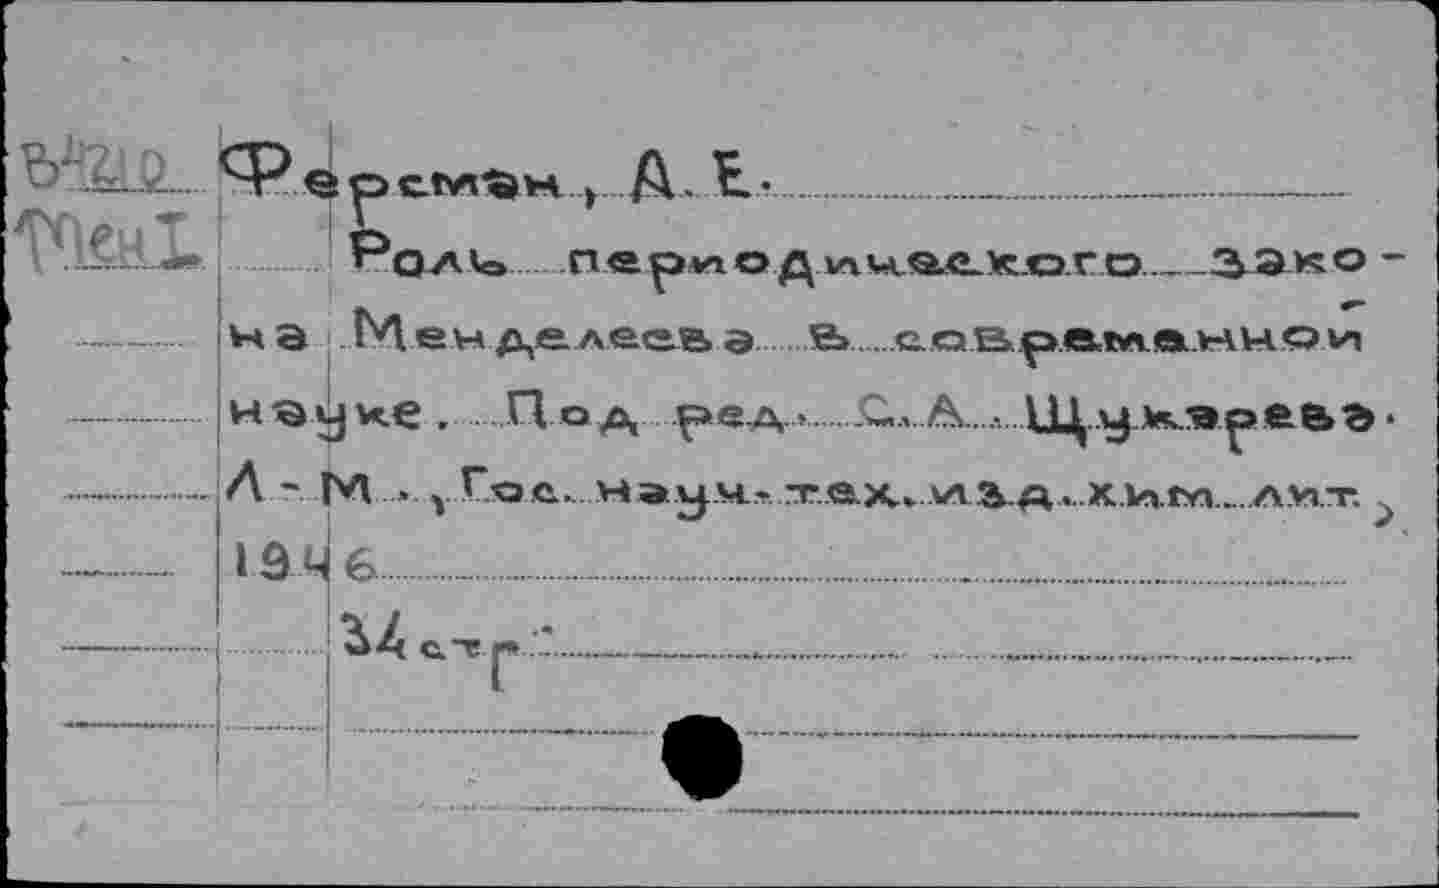 Ферсман, А. Е.
Роль периодического зако-
на Менделеева в современной
науке. Под ред. С. А. Щукарева.
Л-М., Гос. науч.-тех. изд. хим. лит.,
1946
34 стр.